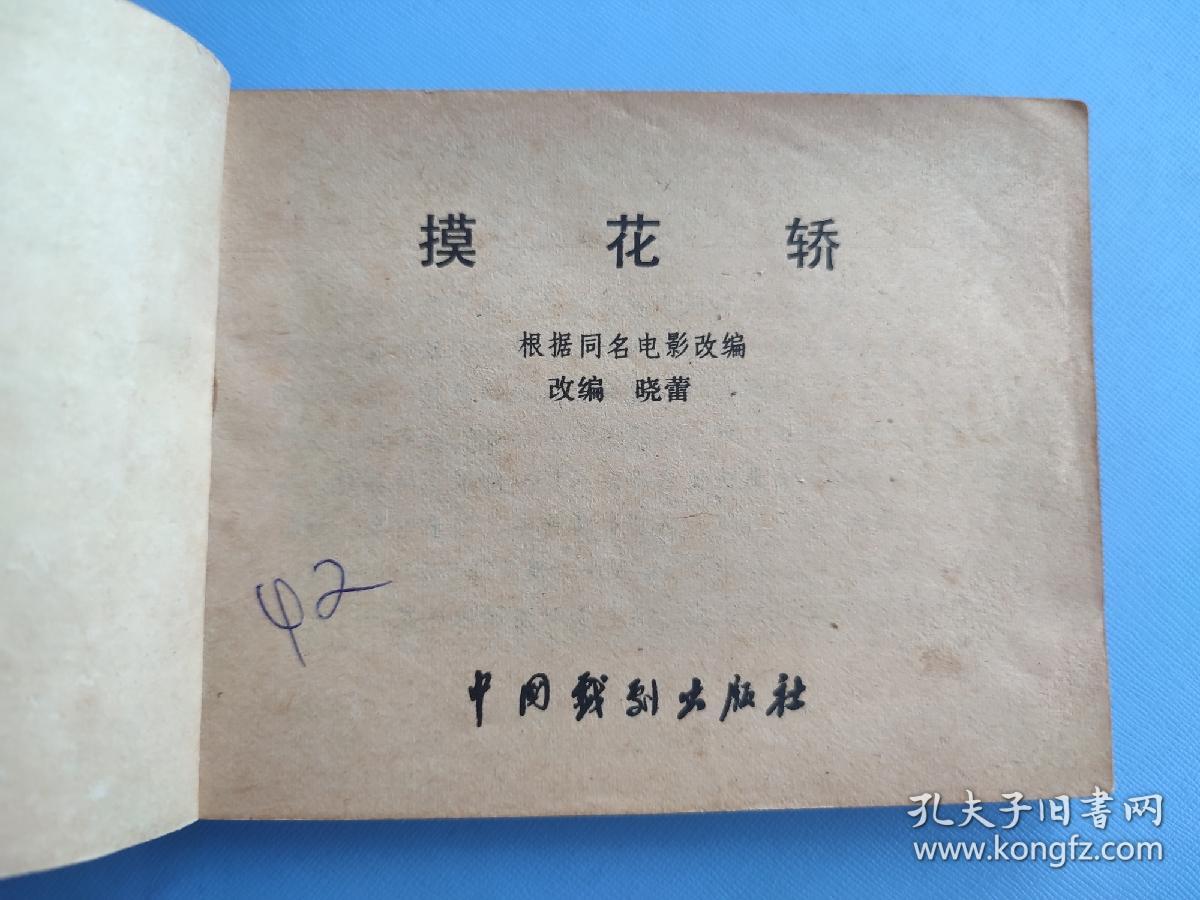 摸花轿
根据同名电影改编
改编 晓蕾
42
中国戏剧出版社
孔夫子旧书网
www.kongfz.com